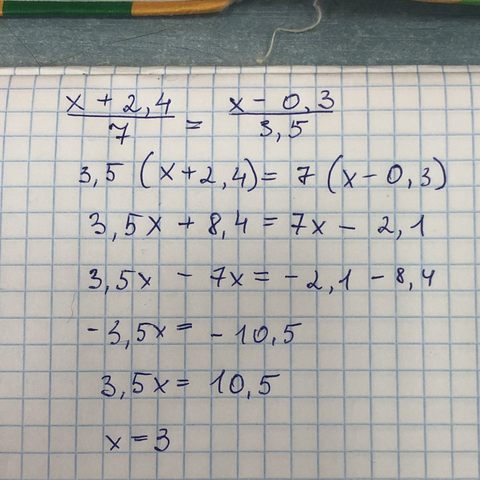 x + 2,4 / 7 = x - 0,3 / 3,5
3,5 (x+2,4) = 7 (x - 0,3)
3,5x + 8,4 = 7x - 2,1
3,5x - 7x = -2,1 - 8,4
-3,5x = -10,5
3,5x = 10,5
x = 3